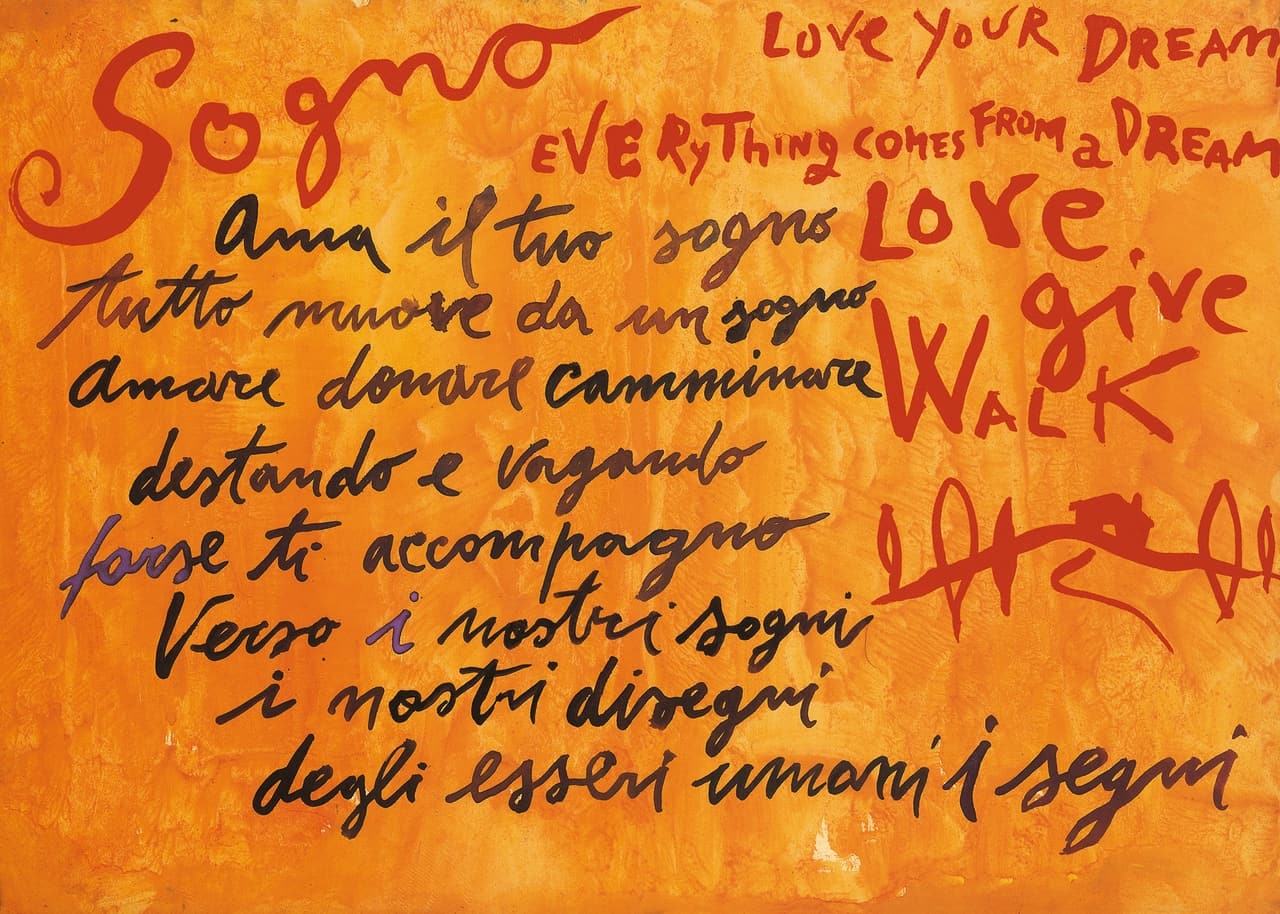 Sogno
LOVE YOUR DREAM
EVERYTHING COMES FROM a DREAM
Ama il tuo sogno
tutto muove da un sogno
Amare donare camminare
destando e vagando
forse ti accompagno
Verso i nostri sogni
i nostri disegni
degli esseri umani i segni
LOVE
give
WALK